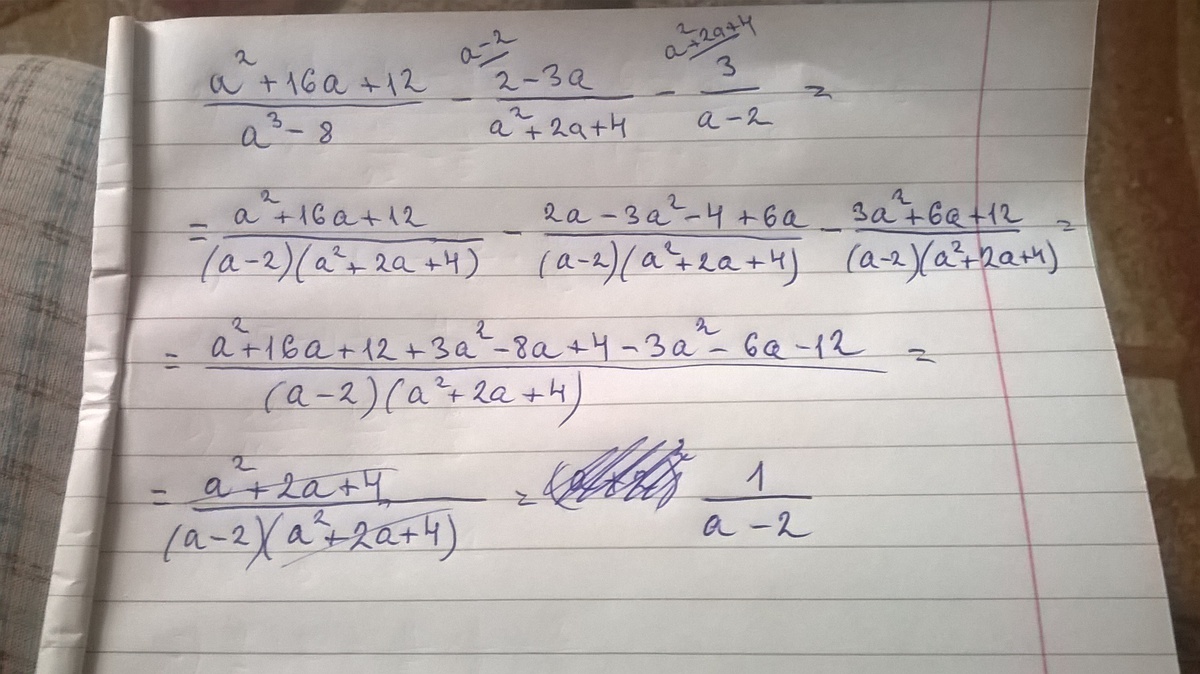 (a² + 16a + 12)/(a³ - 8) - (2 - 3a)/(a² + 2a + 4) [a-2] - 3/(a - 2) [a²+2a+4] =
= (a² + 16a + 12)/((a-2)(a² + 2a + 4)) - (2a - 3a² - 4 + 6a)/((a-2)(a² + 2a + 4)) - (3a² + 6a + 12)/((a-2)(a² + 2a + 4)) =
= (a² + 16a + 12 + 3a² - 8a + 4 - 3a² - 6a - 12)/((a-2)(a² + 2a + 4)) =
= (a² + 2a + 4)/((a-2)(a² + 2a + 4)) = 1/(a - 2)